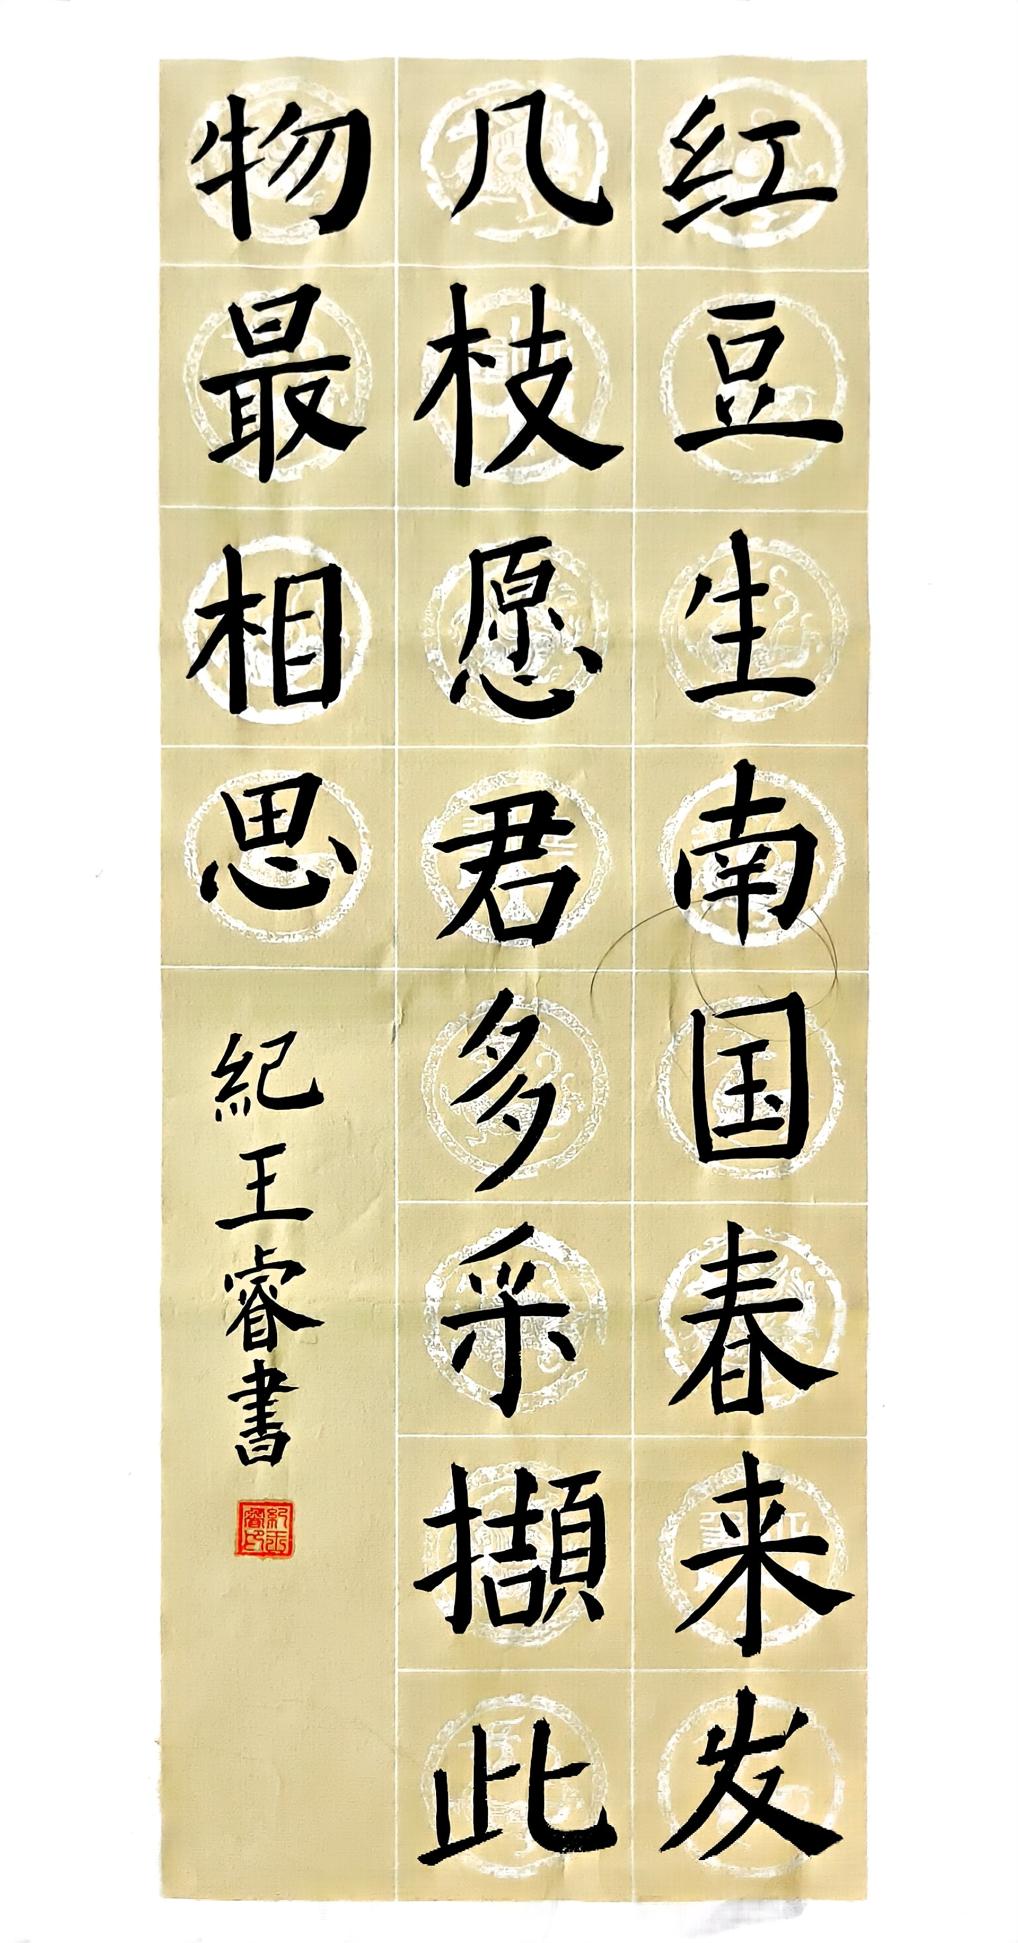 红豆生南国春来发
几枝愿君多采撷此
物最相思
紀王睿書
紀王睿印